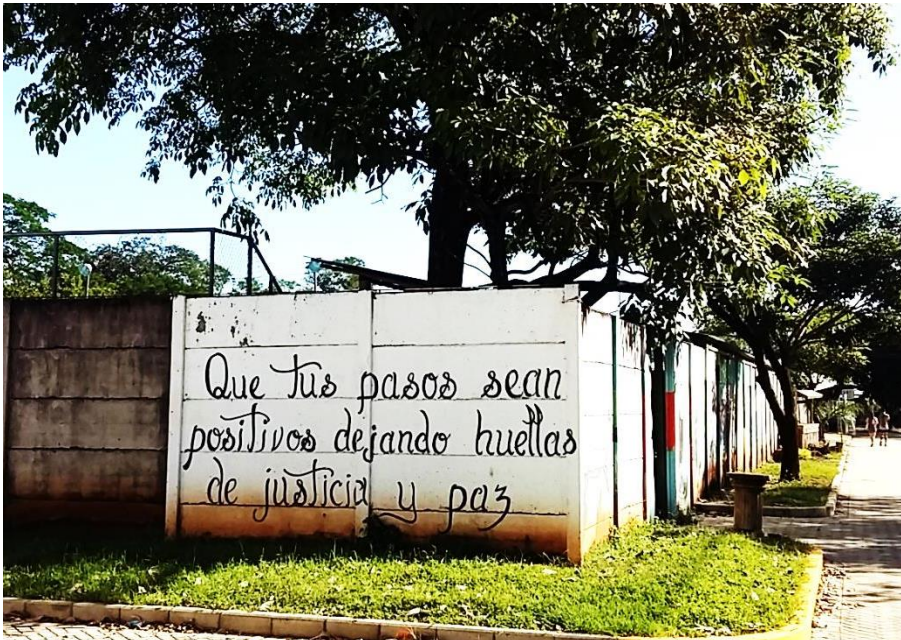 Que tus pasos sean
positivos dejando huellas
de justicia y paz